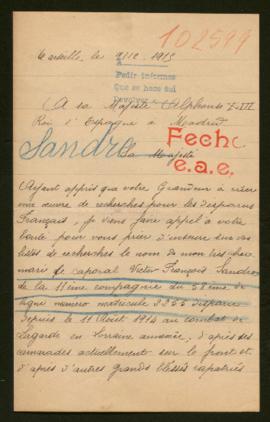 102599
Marseille, le 1915
Pedir informes
Que se hace aquí
A sa Majesté Alphonse XIII
Roi d'Espagne à Madrid
Sandre
Fecho
e.a.e.
Sa Majesté
Ayant appris que votre Grandeur a créer
une œuvre de recherches pour les disparus
Français, Je viens faire appel à votre
bonté pour vous prier d'inscrire sur vos
listes de recherches le nom de mon bien cher
mari le caporal Victor François Sandre
de la 11ème compagnie du 58ème de
ligne numéro matricule disparu
depuis le 11 Août 1914 au combat de
Lagarde en Lorraine annexée, d'après des
camarades actuellement sur le front et
d'après d'autres grands blessés rapatriés